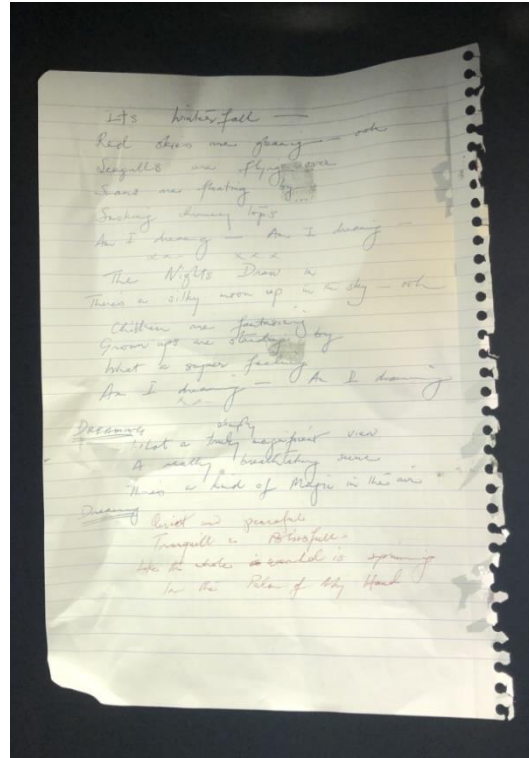 Its Winterfall —
Red skies are gleaming — ooh
Seagulls are flying over
Swans are floating by
Smoking chimney tops
Am I dreaming — Am I dreaming —
x x x x x
The Nights Draw in
Theres a silky moon up in the sky — ooh
Children are fantasising
Grown ups are standing by
What a super feeling
Am I dreaming — Am I dreaming
x x
simply
DREAMING What a truly magnificent view
A really breathtaking scene
Theres a kind of Magic in the air
Dreaming
Quiet and peaceful
Tranquill & Blissfull
Like the whole world is spinning
In the Palm of My Hand